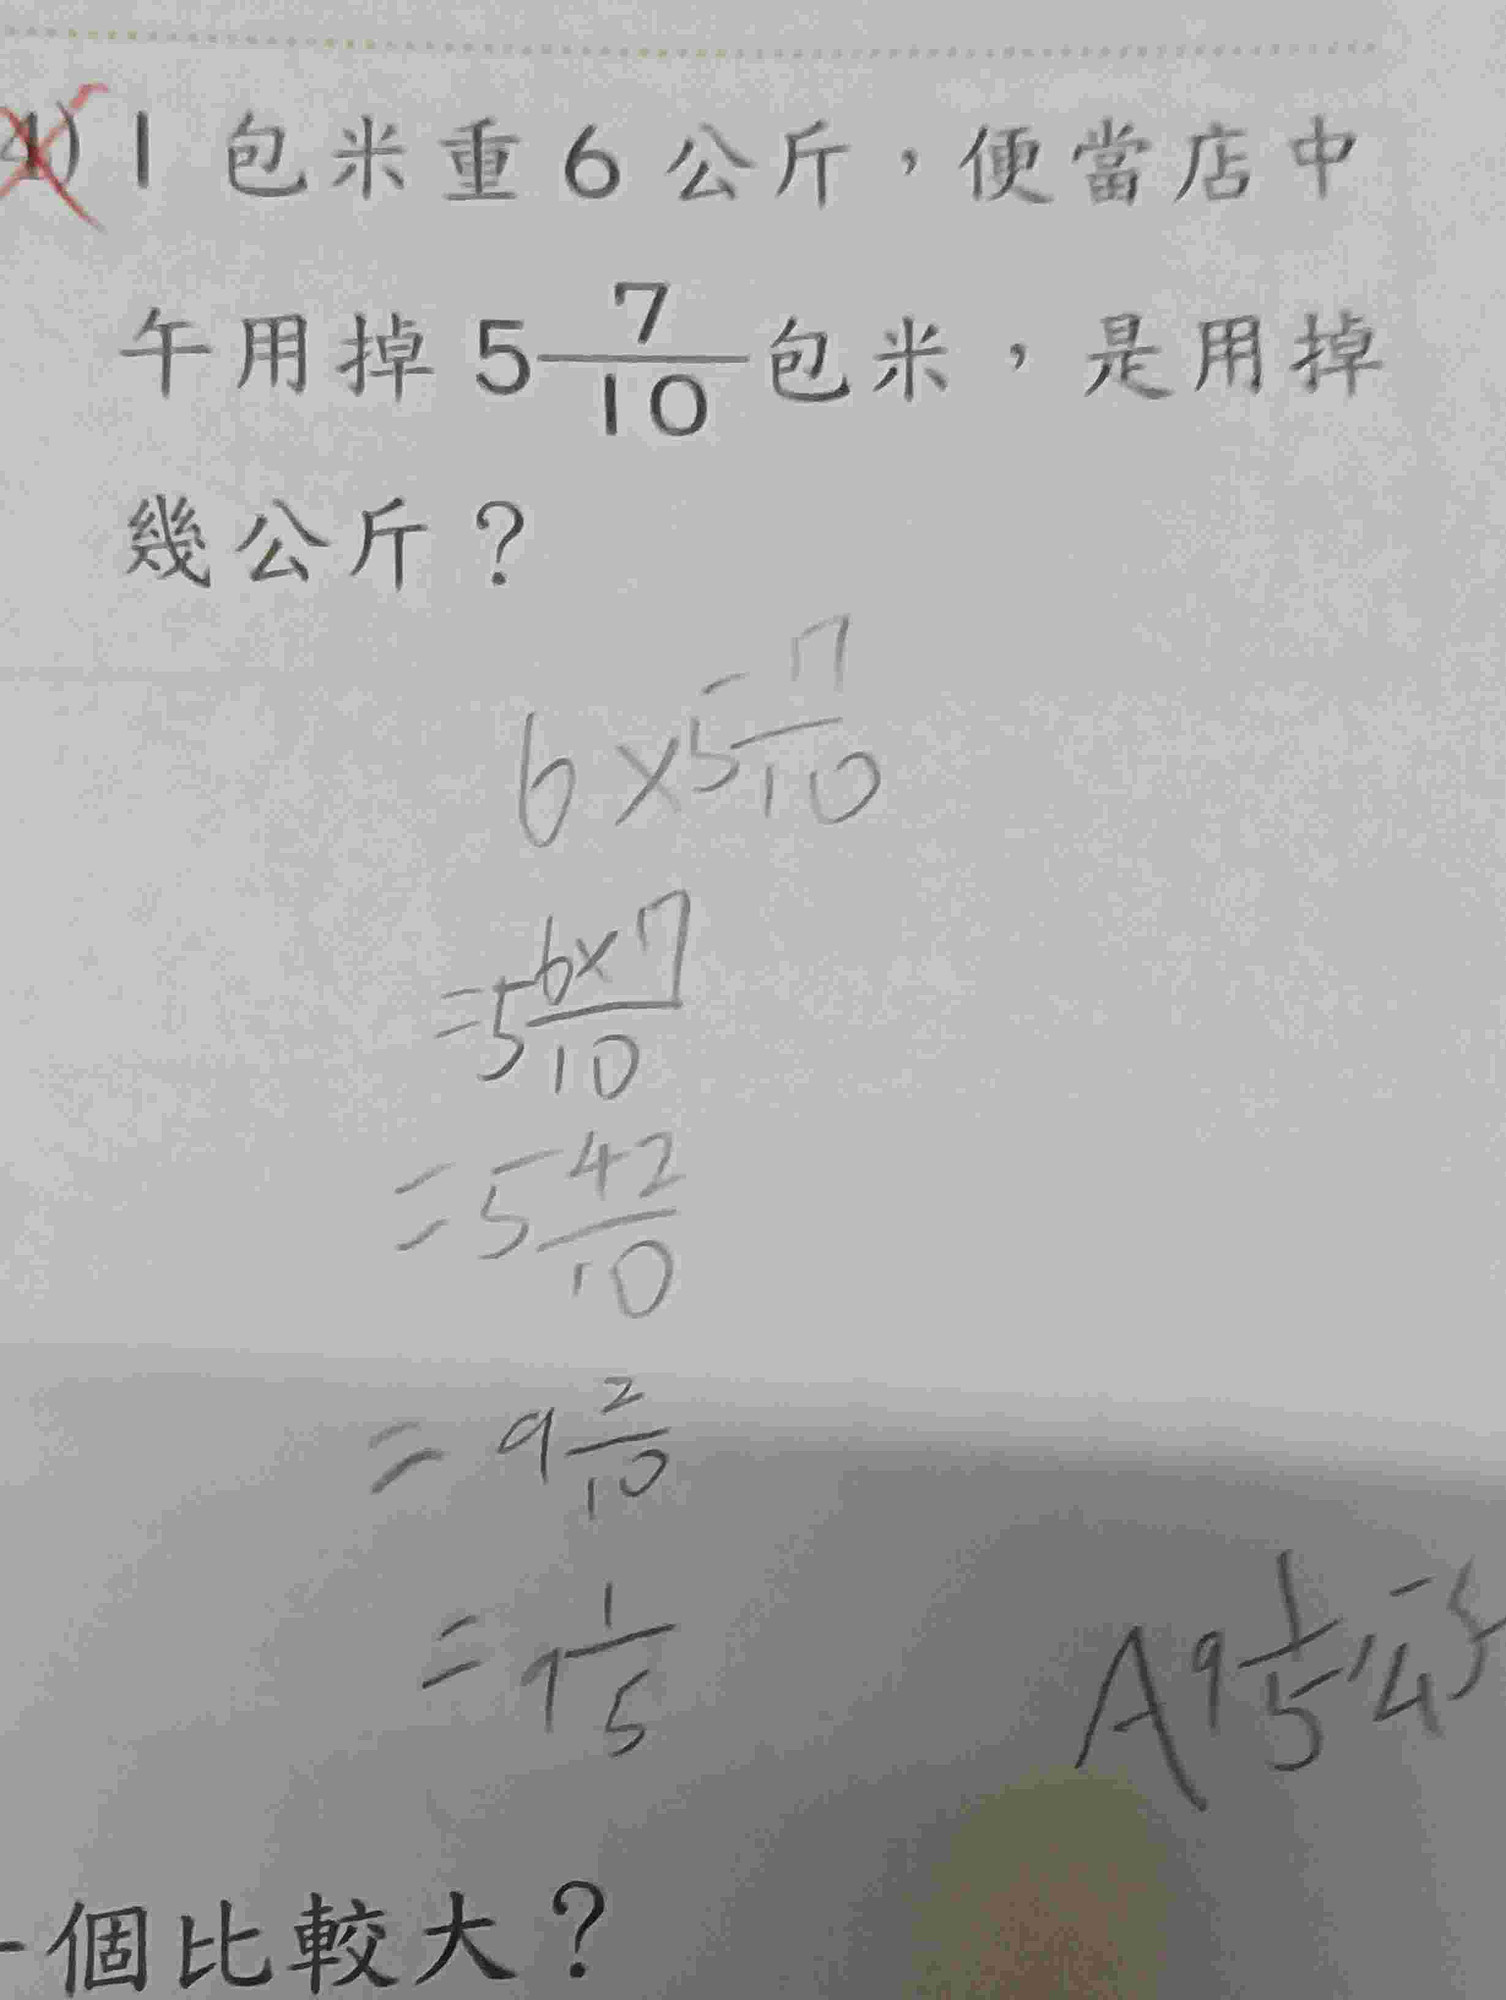 4) 1 包米重 6 公斤，便當店中
午用掉 5 7/10 包米，是用掉
幾公斤？
6×5 7/10
=5 6×7/10
=5 42/10
=9 2/10
=9 1/5
A 9 1/5 公斤
一個比較大？